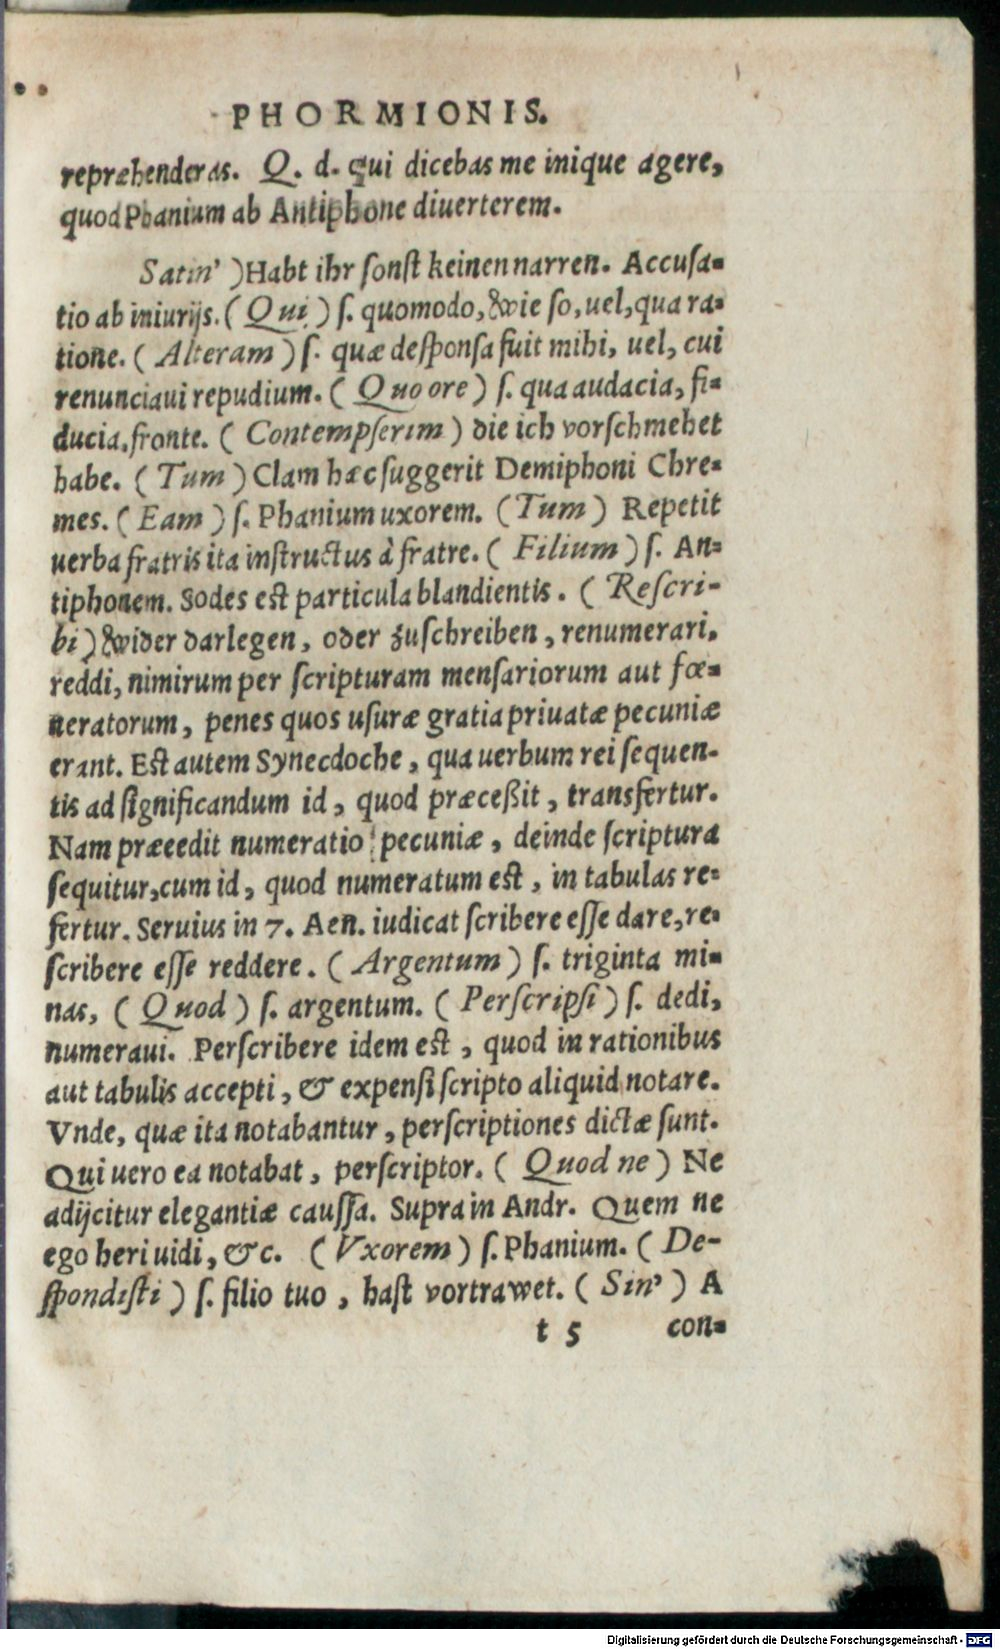 PHORMIONIS.
repræhenderas. Q. d. qui dicebas me inique agere,
quod Phanium ab Antiphone diuerterem.
Satin' ) Habt ihr sonst keinen narren. Accusa-
tio ab iniurijs. ( Qui ) s. quomodo, wie so, uel, qua ra-
tione. ( Alteram ) s. quæ desponsa fuit mihi, uel, cui
renunciaui repudium. ( Quo ore ) s. qua audacia, fi-
ducia, fronte. ( Contempserim ) die ich vorschmehet
habe. ( Tum ) Clam hæc suggerit Demiphoni Chre-
mes. ( Eam ) s. Phanium uxorem. ( Tum ) Repetit
uerba fratris ita instructus à fratre. ( Filium ) s. An-
tiphonem. Sodes est particula blandientis. ( Rescri-
bi ) wider darlegen, oder zuschreiben, renumerari,
reddi, nimirum per scripturam mensariorum aut fœ-
neratorum, penes quos usuræ gratia priuatæ pecuniæ
erant. Est autem Synecdoche, qua uerbum rei sequen-
tis ad significandum id, quod præceßit, transfertur.
Nam præeedit numeratio pecuniæ, deinde scriptura
sequitur, cum id, quod numeratum est, in tabulas re-
fertur. Seruius in 7. Aen. iudicat scribere esse dare, re-
scribere esse reddere. ( Argentum ) s. triginta mi-
nas, ( Quod ) s. argentum. ( Perscripsi ) s. dedi,
numeraui. Perscribere idem est, quod in rationibus
aut tabulis accepti, & expensi scripto aliquid notare.
Vnde, quæ ita notabantur, perscriptiones dictæ sunt.
Qui uero ea notabat, perscriptor. ( Quod ne ) Ne
adijcitur elegantiæ caussa. Supra in Andr. Quem ne
ego heri uidi, &c. ( Vxorem ) s. Phanium. ( De-
spondisti ) s. filio tuo, hast vortrawet. ( Sin' ) A
t 5 con-
Digitalisierung gefördert durch die Deutsche Forschungsgemeinschaft - DFG